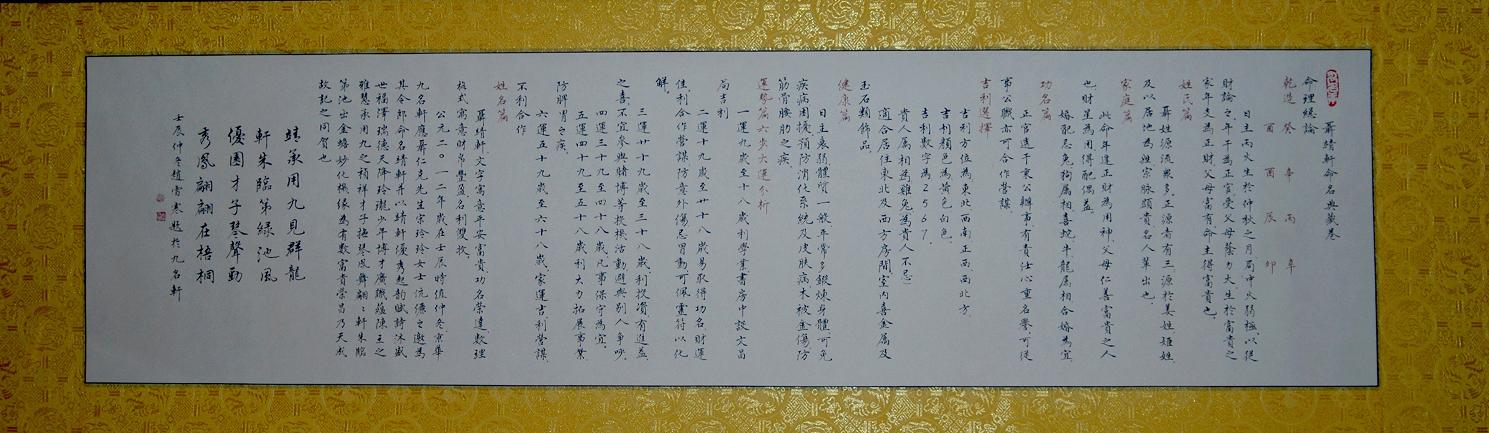 聶靖軒命名典藏卷
命理總論
乾造 癸 辛 丙 辛
酉 酉 辰 卯
日主丙火生於仲秋之月局中火弱極以從
財論之年干為正官受父母蔭力大生於富貴之
家年支為正財父母富有命主得富貴也
姓氏篇
聶姓源流眾多正源者有三源於姜姓姬姓
及以居地為姓宗脉顯貴名人輩出也
家庭篇
此命年逢正財為用神父母仁善富貴之人
也財星為用得配偶益
婚配忌兔狗屬相喜蛇牛龍屬相合婚為宜
功名篇
正官透干秉公辦事有責任心重名譽可從
事公職亦可合作營謀
吉利選擇
吉利方位為東北西南正西西北方
吉利顏色為黃色白色
吉利數字為2567
貴人屬相為雞兔為貴人不忌
適合居住東北及西方房間室內喜金屬及
玉石類飾品
健康篇
日主衰弱體質一般平常多鍛煉身體可免
疾病困擾預防消化系統及皮肤病未被金傷防
筋骨腰肋之疾
運勢篇六步大運分析
一運九歲至十八歲利學業書房中設文昌
局吉利
二運十九歲至廿十八歲易取得功名財運
佳利合作營謀防意外傷忌冒動可佩靈符以化
解
三運廿十九歲至三十八歲利投資有進益
之喜不宜參與賭博等投機活動避與別人爭吵
四運三十九至四十八歲凡事保守為宜
五運四十九至五十八歲利大力拓展事業
防脾胃之疾
六運五十九歲至六十八歲家運吉利營謀
不利合作
姓名篇
聶靖軒文字寓意平安富貴功名榮達數理
格式寓意財帛豐盈名利雙收
公元二〇一二年歲在壬辰時值仲冬京華
九名軒應聶仁克先生宗玲玲女士伉儷之邀為
其令郎命名靖軒并以靖軒優秀起韵賦詩沐盛
世福澤瑞德天降玲瓏少年博才廣識蘊陳王之
雅慧承用九之禎祥才子撫琴恩舞翩翩軒朱臨
第池出金蟾妙化機緣為有數富貴榮昌乃天成
故記之同賀也
靖承用九見群龍
軒朱臨第緑池風
優園才子琴聲動
秀鳳翩翩在梧桐
壬辰仲冬趙雪寒題於九名軒